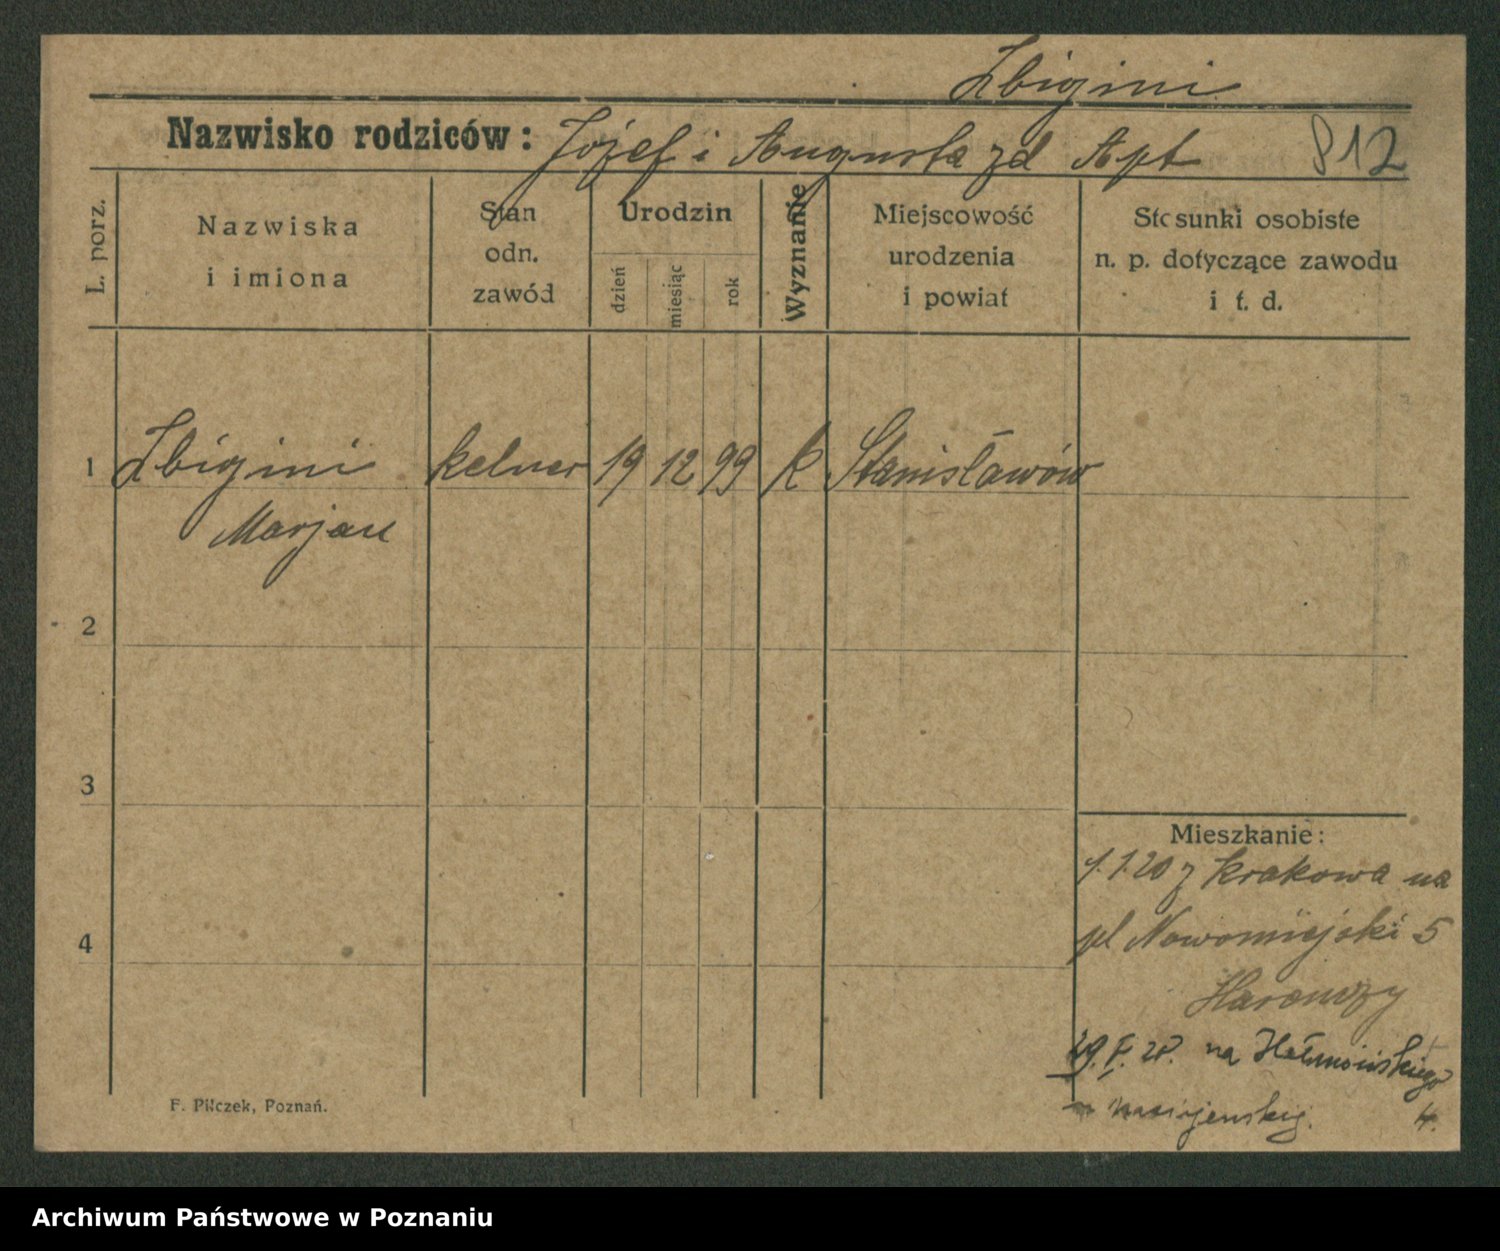 Zbigini
Nazwisko rodziców: Józef i Augusta zd Apt 812
L. porz.
Nazwiska
i imiona
Stan
odn.
zawód
Urodzin
dzień
miesiąc
rok
Wyznanie
Miejscowość
urodzenia
i powiat
Stosunki osobiste
n. p. dotyczące zawodu
i t. d.
1 Zbigini kelner 19 12 99 k Stanisławów
Marjan
2
3
Mieszkanie:
1.7.20 z Krakowa na
pl Nowomiejski 5
4
na
4.
F. Pilczek, Poznań.
Archiwum Państwowe w Poznaniu